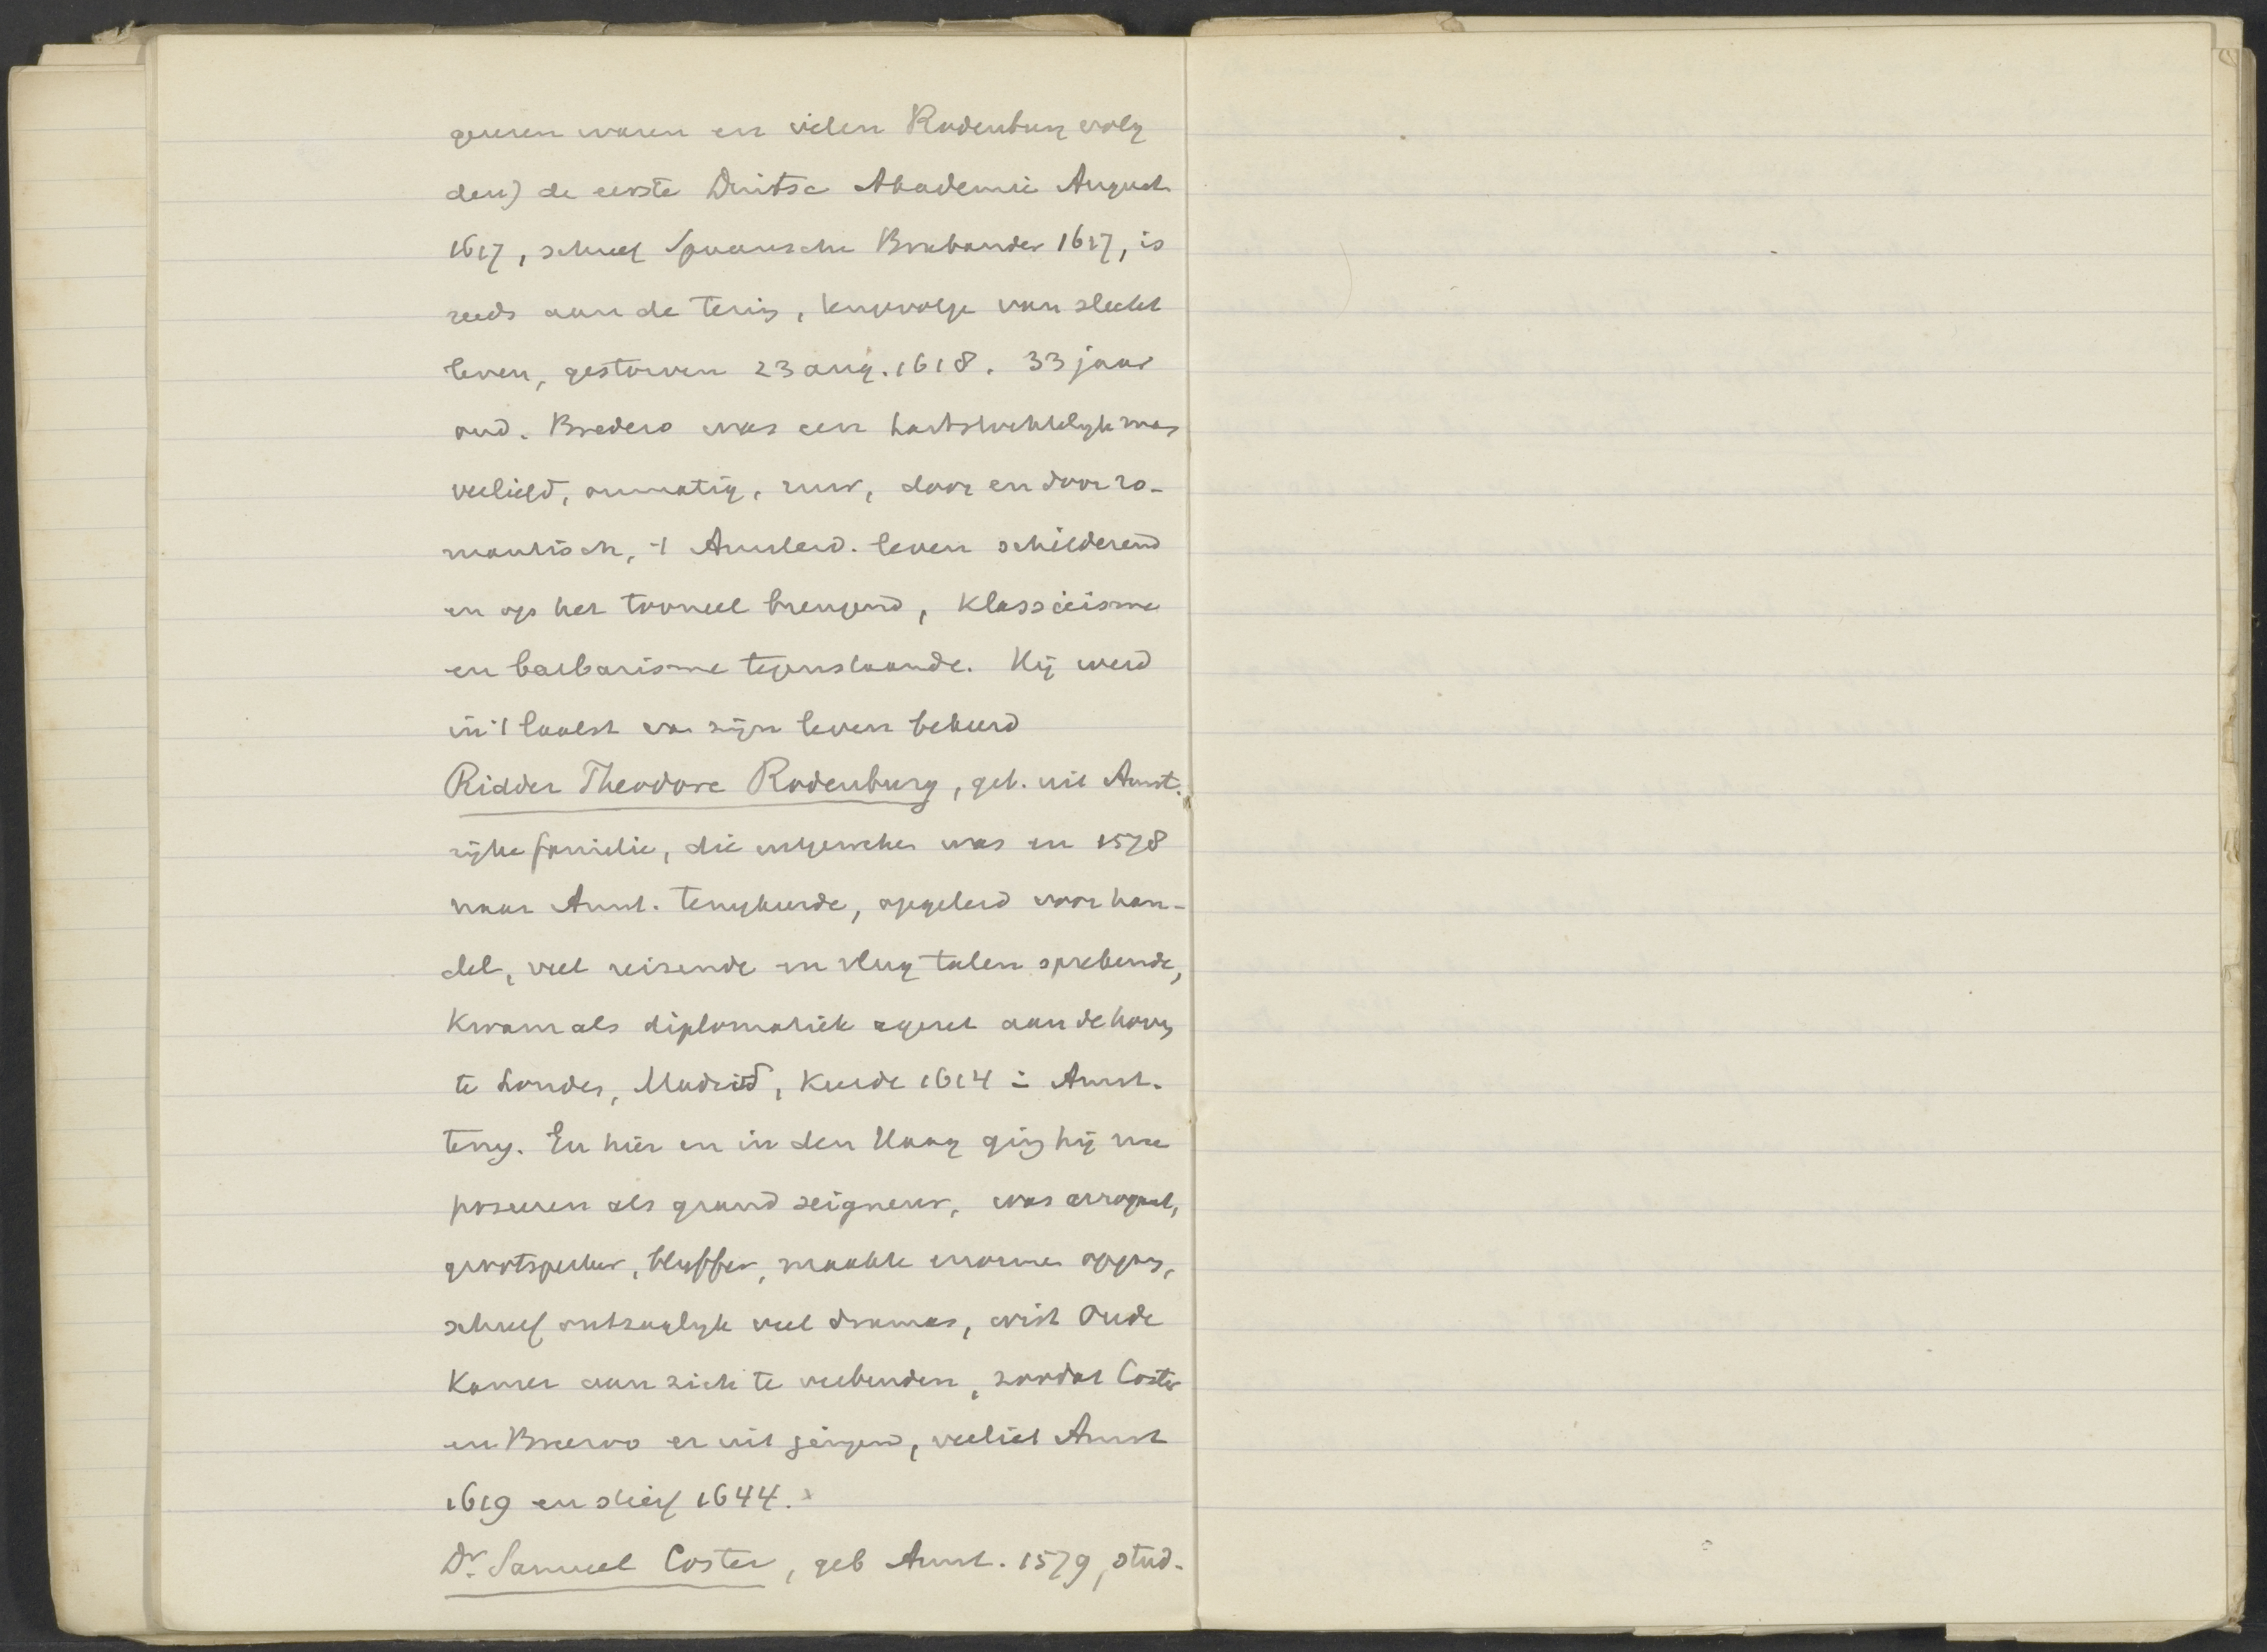 geweren waren en velen Rodenburg volg
den) de eerste Duitse Akademie August
1617, schreef Spaansche Brabander 1617, is
reeds aan de tering, tengevolge van slecht
leven, gestorven 23 aug. 1618. 33 jaar
oud. Bredero was een hartstochtelijk mens
verliefd, onmatig, ruw, door en door ro-
mantisch, 't Amsterd. leven schilderend
en op het tooneel brengend, klassicisme
en barbarisme tegenstaande. Hij werd
in 't laatst van zijn leven bekeerd
Ridder Theodore Rodenburg, geb. uit Amst.
rijke familie, die uitgeweken was en 1578
naar Amst. terugkeerde, opgeleid voor han-
del, veel reizende en vlug talen sprekende,
kwam als diplomatiek agent aan de hoven
te Londen, Madrid, keerde 1614 in Amst.
terug. En hier en in den Haag ging hij nu
poseeren als grand seigneur, was arrogant,
grootspreker, bluffer, maakte enorme opgang,
schreef ontzaglijk veel dramas, wist Oude
Kamer aan zich te verbinden, zoodat Coster
en Breeroo er uit gingen, verliet Amst
1619 en stierf 1644.
Dr. Samuel Coster, geb Amst. 1579, stud-